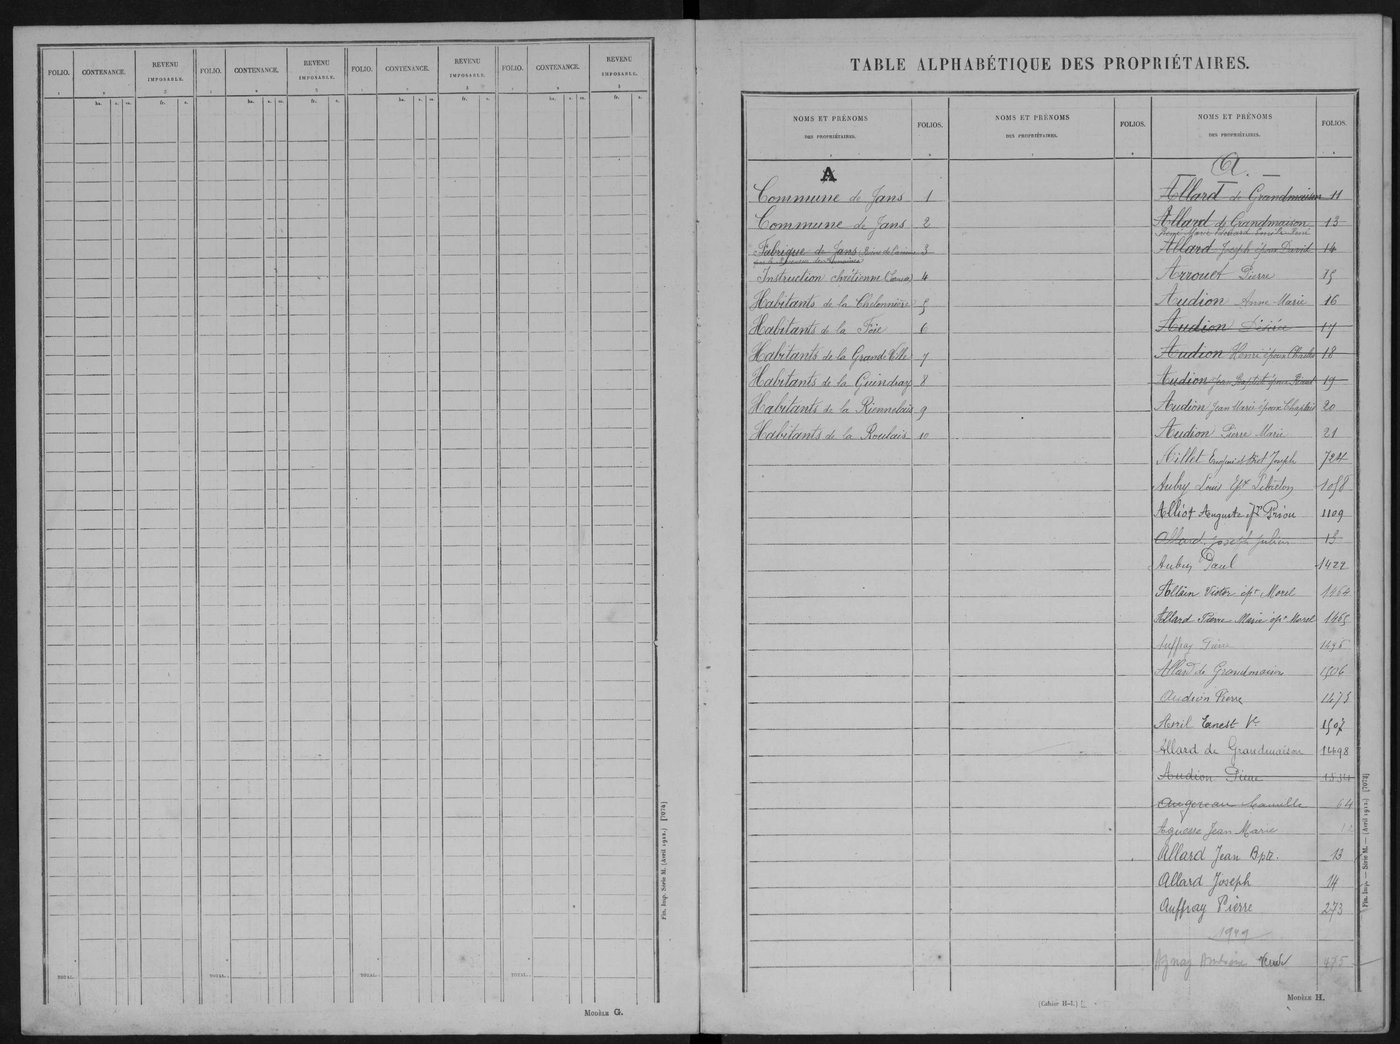 FOLIO. CONTENANCE. REVENU IMPOSABLE. FOLIO. CONTENANCE. REVENU IMPOSABLE. FOLIO. CONTENANCE. REVENU IMPOSABLE. FOLIO. CONTENANCE. REVENU IMPOSABLE.
1 2 3 1 2 3 1 2 3 1 2 3
ha. a. ca. fr. c. ha. a. ca. fr. c. ha. a. ca. fr. c. ha. a. ca. fr. c.
TOTAL. TOTAL. TOTAL. TOTAL.
Fin. Imp. Série M. (Avril 1912.) [7074]
MODÈLE G.
TABLE ALPHABÉTIQUE DES PROPRIÉTAIRES.
NOMS ET PRÉNOMS
DES PROPRIÉTAIRES.
FOLIOS.
A
Commune de Jans 1
Commune de Jans 2
Fabrique de Jans 3
Instruction chrétienne 4
Habitants de la Chelonnière 5
Habitants de la Foie 6
Habitants de la Grande Ville 7
Habitants de la Guindray 8
Habitants de la Rionnelais 9
Habitants de la Roulais 10
NOMS ET PRÉNOMS
DES PROPRIÉTAIRES.
FOLIOS.
NOMS ET PRÉNOMS
DES PROPRIÉTAIRES.
FOLIOS.
A.
Allard de Grandmaison 11
Allard de Grandmaison 13
Allard Joseph époux David 14
Arrouet Pierre 15
Audion Anne Marie 16
Audion Désirée 17
Audion Henri époux 18
Audion Jean Baptiste époux 19
Audion Jean Marie époux 20
Audion Pierre Marie 21
Aillet Joseph 724
Aubry Louis Ep. Lebreton 1058
Alliot Auguste ép. Priou 1109
Allard Joseph Julien 13
Aubry Paul 1422
Allain Victor ép. Morel 1464
Allard Pierre Marie ép. Morel 1465
Auffray Pierre 1496
Allard de Grandmaison 1506
Audion Pierre 1473
Avril Ernest Ve 1507
Allard de Grandmaison 1498
Audion Pierre
Angereau 64
Aguesse Jean Marie
Allard Jean Bpte. 13
Allard Joseph 14
Auffray Pierre 273
1949
485
Fin. Imp. — Série M. — (Avril 1912.) [7073]
(Cahier H-1.)
MODÈLE H.